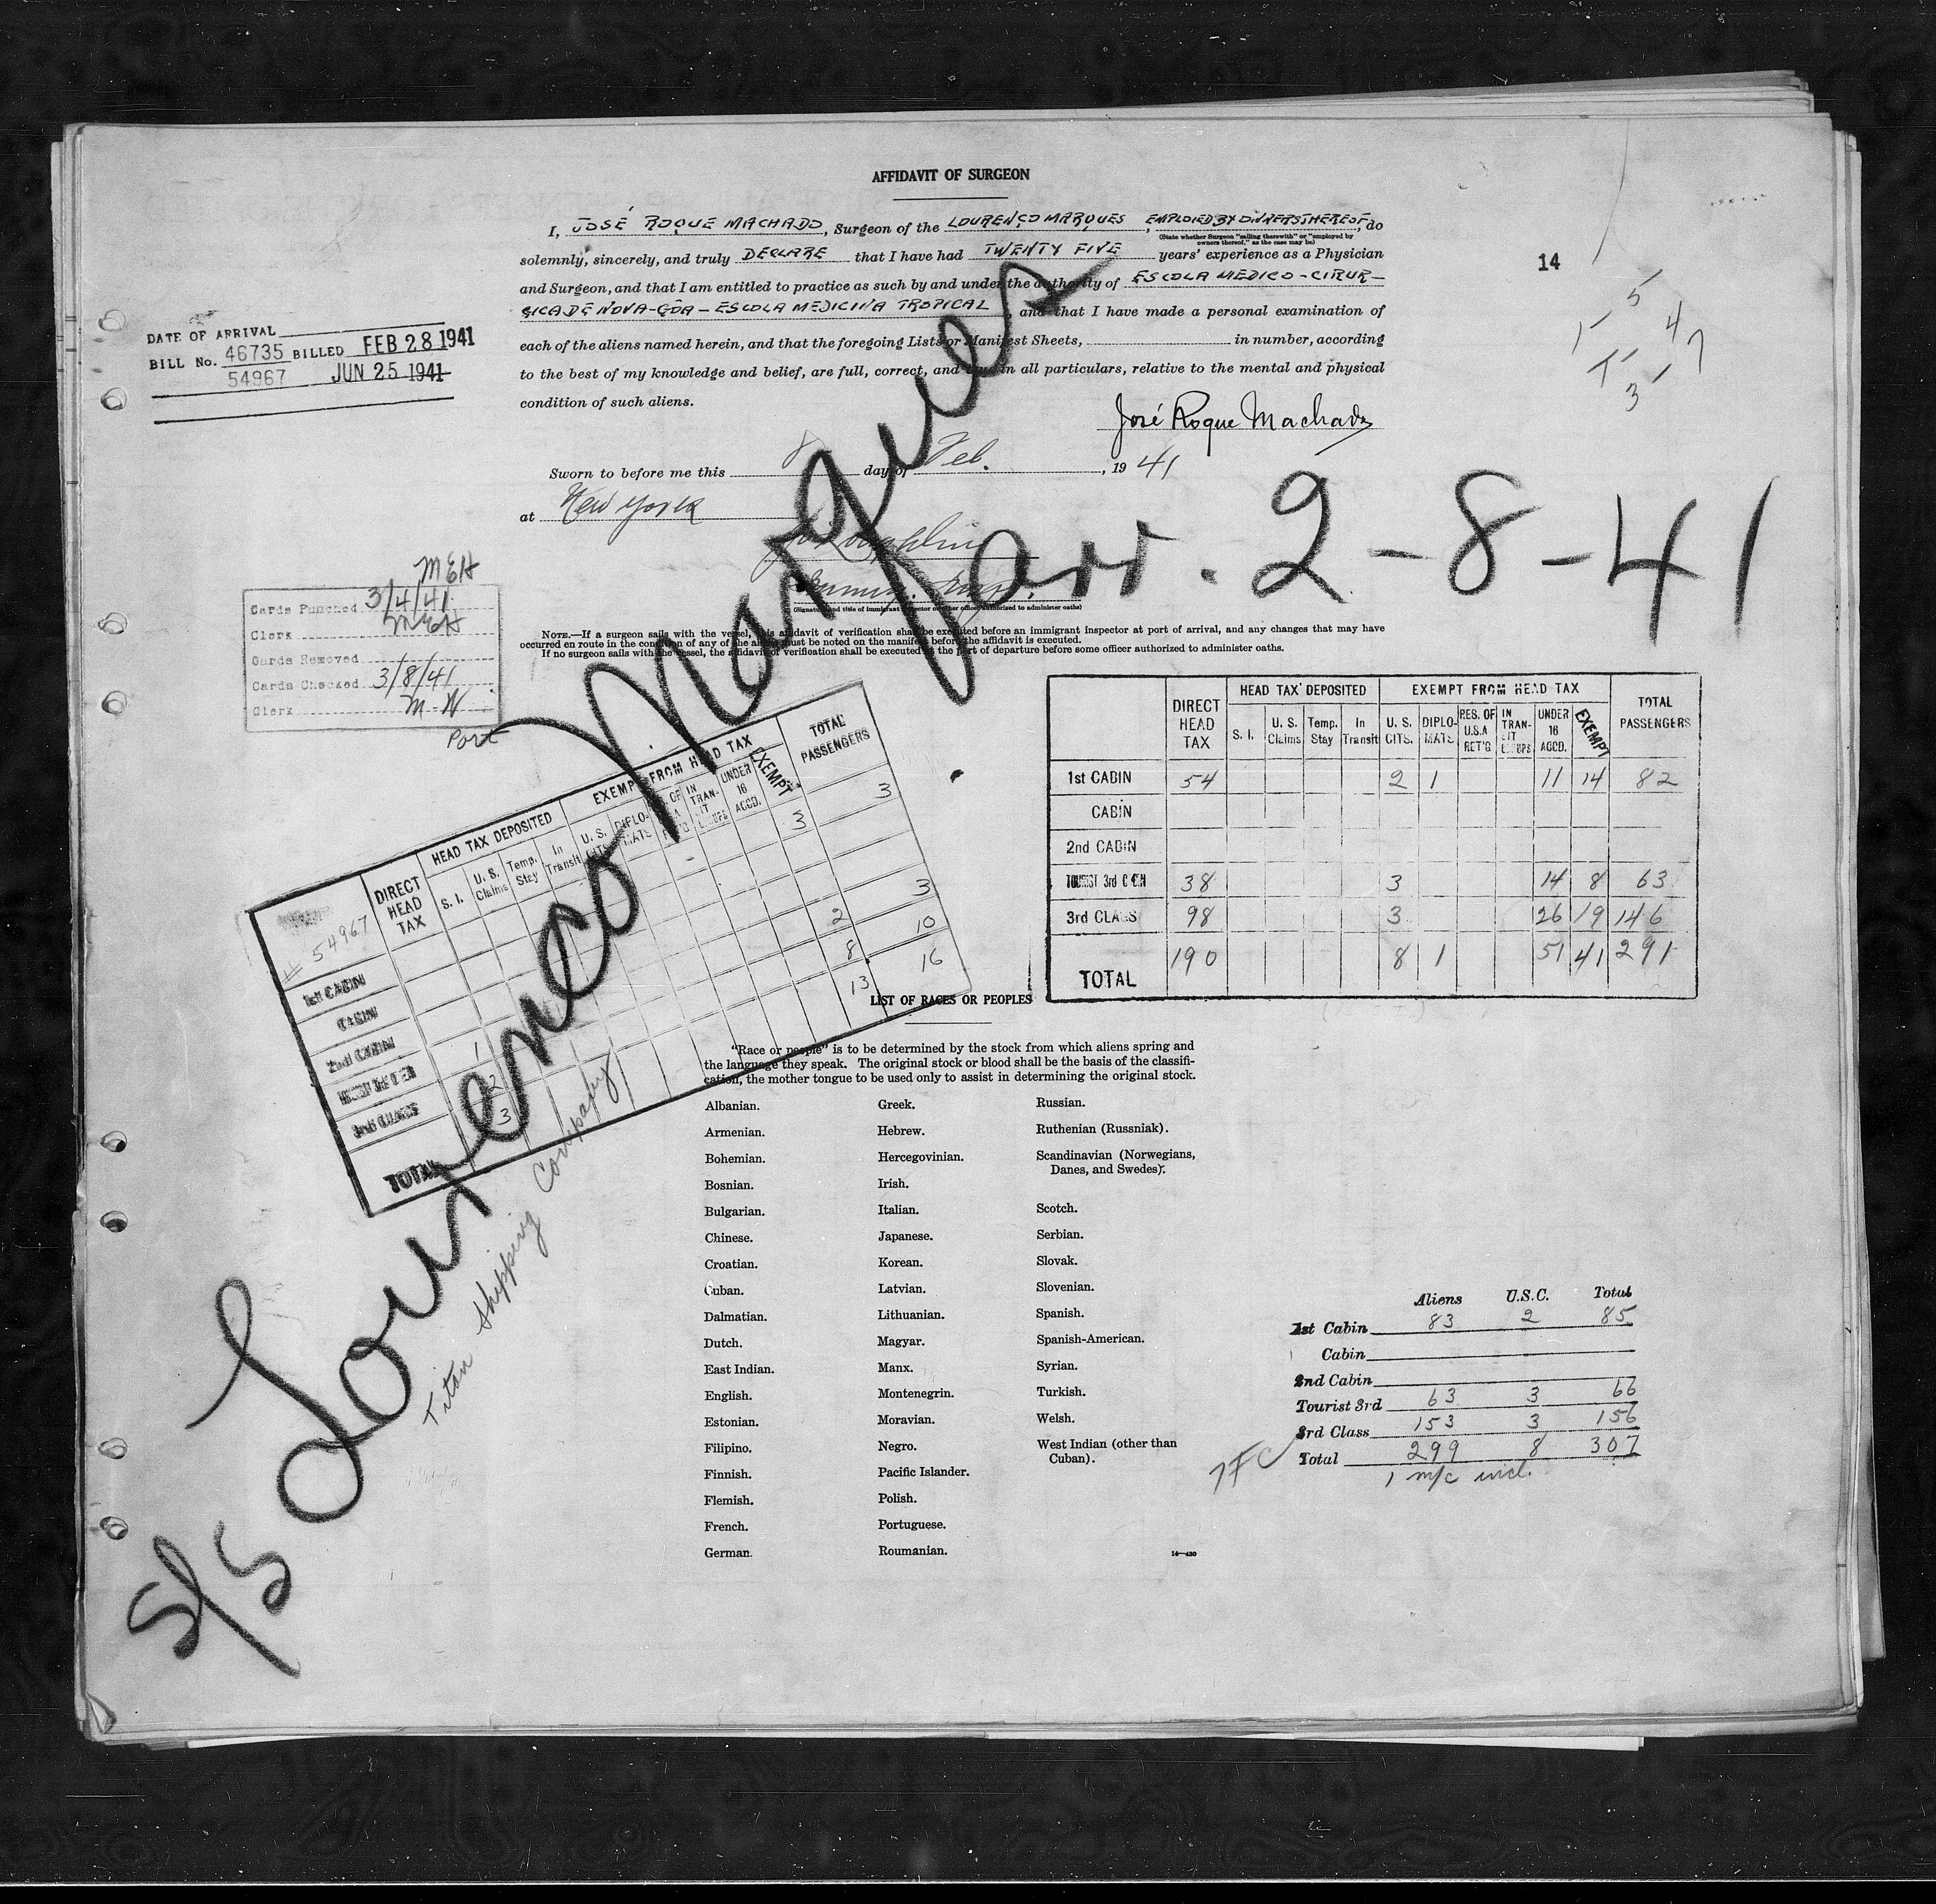 AFFIDAVIT OF SURGEON
I, JOSÉ ROQUE MACHADO, Surgeon of the LOURENÇO MARQUES, EMPLOIED BY OWNERS THEREOF, do
(State whether Surgeon "sailing therewith" or "employed by
owners thereof," as the case may be)
solemnly, sincerely, and truly DECLARE that I have had TWENTY FIVE years' experience as a Physician
and Surgeon, and that I am entitled to practice as such by and under the authority of ESCOLA MEDICO-CIRUR-
GICA DE NOVA-GÔA - ESCOLA MEDICINA TROPICAL, and that I have made a personal examination of
each of the aliens named herein, and that the foregoing Lists or Manifest Sheets, in number, according
to the best of my knowledge and belief, are full, correct, and true in all particulars, relative to the mental and physical
condition of such aliens.
José Roque Machado
Sworn to before me this 8 day of Feb., 1941
at New York
(Signature and title of immigrant inspector or other officer authorized to administer oaths)
NOTE.—If a surgeon sails with the vessel, this affidavit of verification shall be executed before an immigrant inspector at port of arrival, and any changes that may have
occurred en route in the condition of any of the aliens must be noted on the manifest before the affidavit is executed.
If no surgeon sails with the vessel, the affidavit of verification shall be executed at the port of departure before some officer authorized to administer oaths.
14
5
1 4 7
3
DATE OF ARRIVAL
BILL No. 46735 BILLED FEB 28 1941
54967 JUN 25 1941
MEH
Cards Punched 3/4/41
Clerk MEH
Cards Removed
Cards Checked 3/8/41
Clerk M-W
Port
S/S Lourenco Marques
arr. 2-8-41
Titan Shipping Company
# 54967
DIRECT HEAD TAX
HEAD TAX DEPOSITED
S. I. U. S. Claims Temp. Stay In Transit
EXEMPT FROM HEAD TAX
U. S. CITS. DIPLO-MATS RES. OF U.S.A RET'G IN TRAN-SIT GROUPS UNDER 16 ACCD. EXEMPT
TOTAL PASSENGERS
1st CABIN 3 3
CABIN
2nd CABIN
TOURIST 3rd CABIN 1 2 3
3rd CLASS 2 8 10
TOTAL 3 13 16
DIRECT HEAD TAX
HEAD TAX DEPOSITED
S. I. U. S. Claims Temp. Stay In Transit
EXEMPT FROM HEAD TAX
U. S. CITS. DIPLO-MATS RES. OF U.S.A RET'G IN TRAN-SIT GROUPS UNDER 16 ACCD. EXEMPT
TOTAL PASSENGERS
1st CABIN 54 2 1 11 14 82
CABIN
2nd CABIN
TOURIST 3rd CABIN 38 3 14 8 63
3rd CLASS 98 3 26 19 146
TOTAL 190 8 1 51 41 291
LIST OF RACES OR PEOPLES
"Race or people" is to be determined by the stock from which aliens spring and
the language they speak. The original stock or blood shall be the basis of the classifi-
cation, the mother tongue to be used only to assist in determining the original stock.
Albanian.
Armenian.
Bohemian.
Bosnian.
Bulgarian.
Chinese.
Croatian.
Cuban.
Dalmatian.
Dutch.
East Indian.
English.
Estonian.
Filipino.
Finnish.
Flemish.
French.
German.
Greek.
Hebrew.
Hercegovinian.
Irish.
Italian.
Japanese.
Korean.
Latvian.
Lithuanian.
Magyar.
Manx.
Montenegrin.
Moravian.
Negro.
Pacific Islander.
Polish.
Portuguese.
Roumanian.
Russian.
Ruthenian (Russniak).
Scandinavian (Norwegians,
Danes, and Swedes).
Scotch.
Serbian.
Slovak.
Slovenian.
Spanish.
Spanish-American.
Syrian.
Turkish.
Welsh.
West Indian (other than
Cuban).
Aliens U.S.C. Total
1st Cabin 83 2 85
Cabin
2nd Cabin
Tourist 3rd 63 3 66
3rd Class 153 3 156
Total 299 8 307
1 m/c incl.